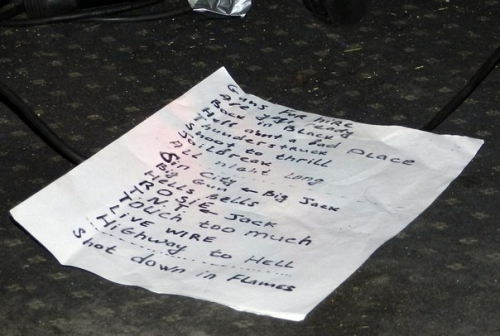 Guns for HIRE
Back in Black
about a Bad PLACE
thunderstruck
Shoot to thrill
Jailbreak
night Long
Sin City ← Big Jack
Big Gun
Hells Bells
ROSIE
T.N.T ← Jack
TOUCH too much
LIVE WIRE
Highway to Hell
Shot down in FLAMES